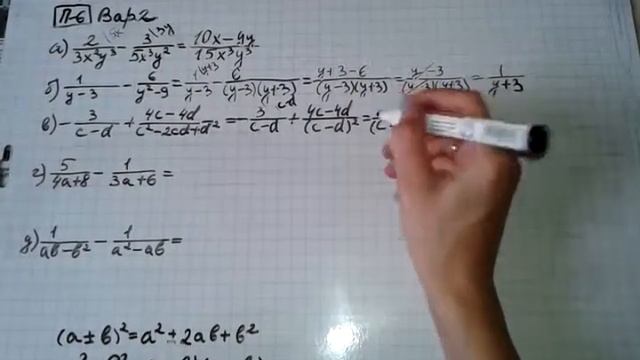 П-6 Вар 2
а) 2/3x²y³ - 3/5x³y² = 10x-9y/15x³y³
б) 1/y-3 - 6/y²-9 = 1/y-3 - 6/(y-3)(y+3) = y+3-6/(y-3)(y+3) = y-3/(y-3)(y+3) = 1/y+3
в) -3/c-d + 4c-4d/c²-2cd+d² = -3/c-d + 4c-4d/(c-d)² =
г) 5/4a+8 - 1/3a+6 =
д) 1/ab-b² - 1/a²-ab =
(a±b)²=a²±2ab+b²